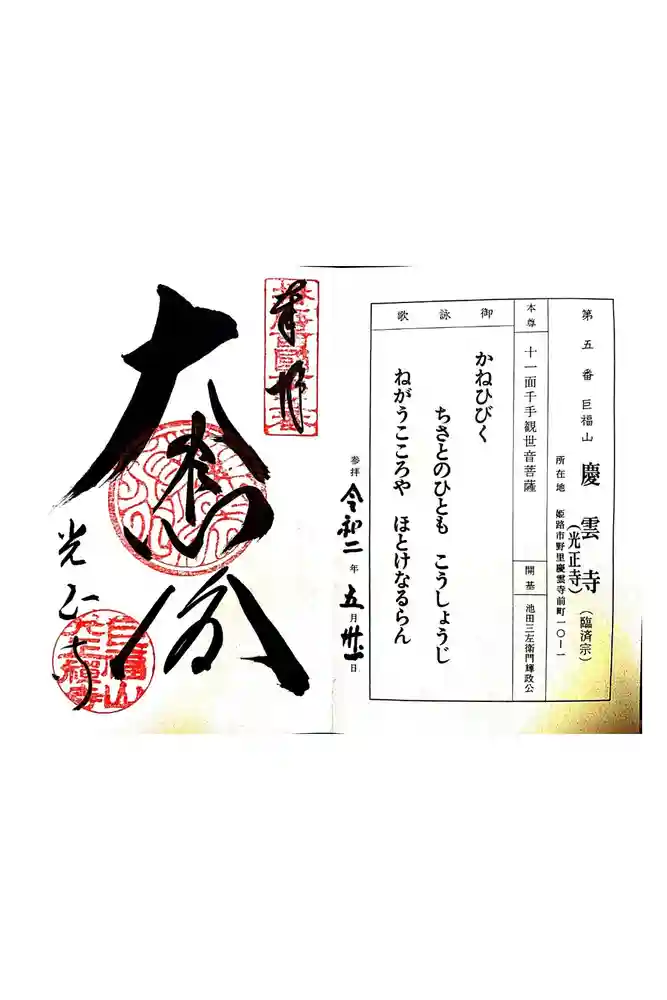 第五番 巨福山 慶雲寺(光正寺)(臨済宗)
所在地 姫路市野里慶雲寺前町一〇ー一
本尊 十一面千手観世音菩薩
開基 池田三左衛門輝政公
御詠歌
かねひびく
ちさとのひとも こうしょうじ
ねがうこころや ほとけなるらん
参拝 令和二年五月卅一日
奉拝
大悲
光正寺